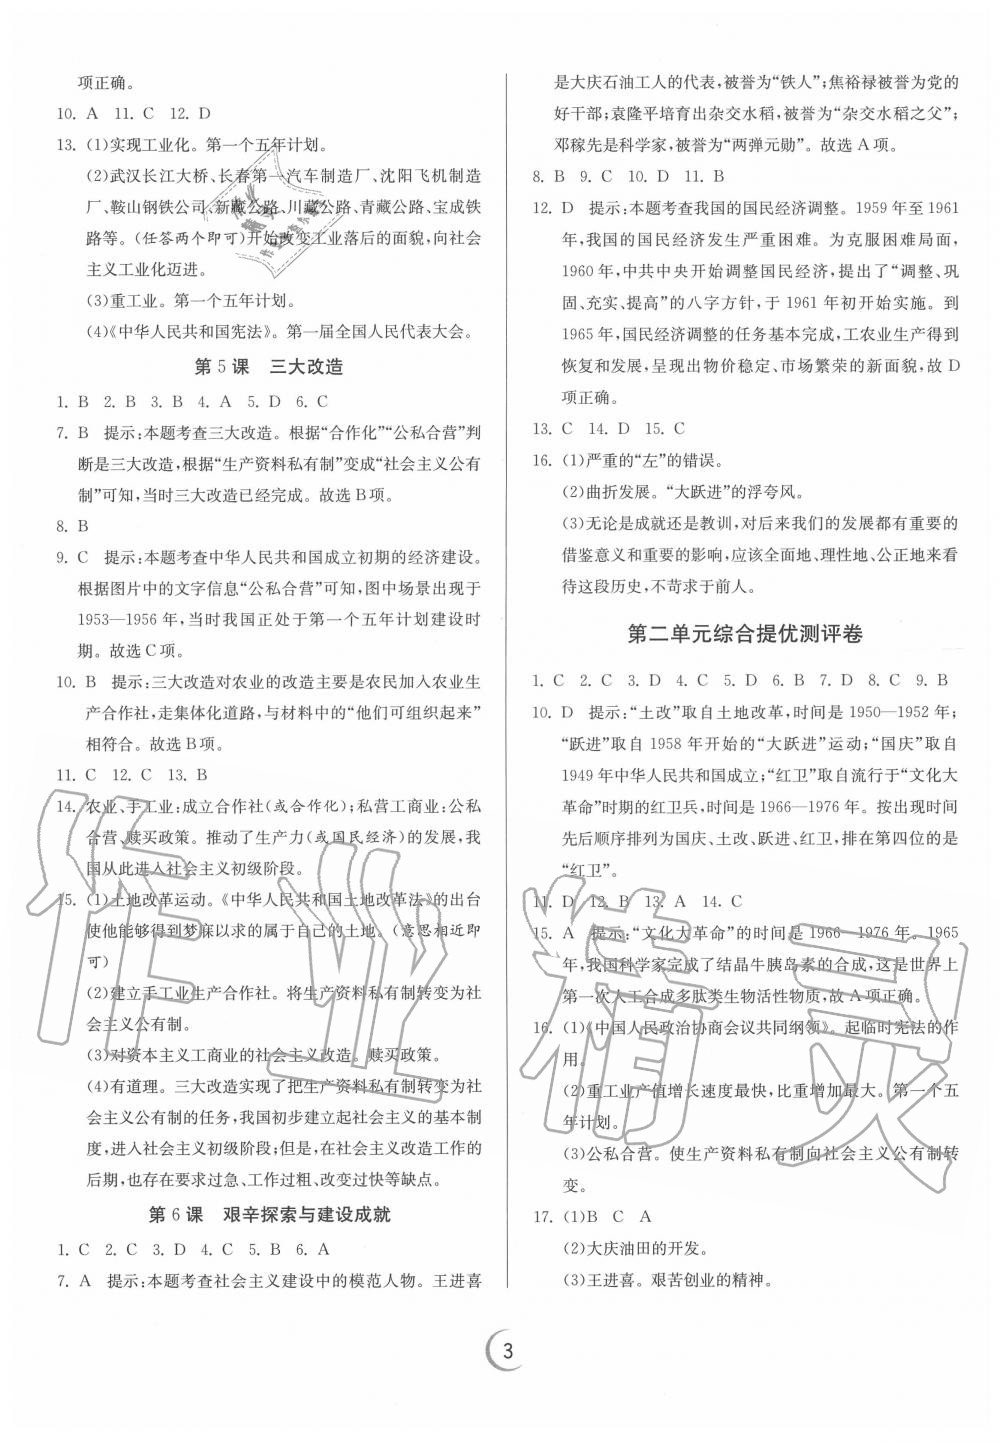 项正确。
10. A 11. C 12. D
13. (1)实现工业化。第一个五年计划。
(2)武汉长江大桥、长春第一汽车制造厂、沈阳飞机制造
厂、鞍山钢铁公司、新藏公路、川藏公路、青藏公路、宝成铁
路等。(任答两个即可)开始改变工业落后的面貌,向社会
主义工业化迈进。
(3)重工业。第一个五年计划。
(4)《中华人民共和国宪法》。第一届全国人民代表大会。
第5课 三大改造
1. B 2. B 3. B 4. A 5. D 6. C
7. B 提示:本题考查三大改造。根据“合作化”“公私合营”判
断是三大改造,根据“生产资料私有制”变成“社会主义公有
制”可知,当时三大改造已经完成。故选B项。
8. B
9. C 提示:本题考查中华人民共和国成立初期的经济建设。
根据图片中的文字信息“公私合营”可知,图中场景出现于
1953—1956年,当时我国正处于第一个五年计划建设时
期。故选C项。
10. B 提示:三大改造对农业的改造主要是农民加入农业生
产合作社,走集体化道路,与材料中的“他们可组织起来”
相符合。故选B项。
11. C 12. C 13. B
14. 农业、手工业:成立合作社(或合作化);私营工商业:公私
合营、赎买政策。推动了生产力(或国民经济)的发展,我
国从此进入社会主义初级阶段。
15. (1)土地改革运动。《中华人民共和国土地改革法》的出台
使他能够得到梦寐以求的属于自己的土地。(意思相近即
可)
(2)建立手工业生产合作社。将生产资料私有制转变为社
会主义公有制。
(3)对资本主义工商业的社会主义改造。赎买政策。
(4)有道理。三大改造实现了把生产资料私有制转变为社
会主义公有制的任务,我国初步建立起社会主义的基本制
度,进入社会主义初级阶段;但是,在社会主义改造工作的
后期,也存在要求过急、工作过粗、改变过快等缺点。
第6课 艰辛探索与建设成就
1. C 2. C 3. D 4. C 5. B 6. A
7. A 提示:本题考查社会主义建设中的模范人物。王进喜
是大庆石油工人的代表,被誉为“铁人”;焦裕禄被誉为党的
好干部;袁隆平培育出杂交水稻,被誉为“杂交水稻之父”;
邓稼先是科学家,被誉为“两弹元勋”。故选A项。
8. B 9. C 10. D 11. B
12. D 提示:本题考查我国的国民经济调整。1959年至1961
年,我国的国民经济发生严重困难。为克服困难局面,
1960年,中共中央开始调整国民经济,提出了“调整、巩
固、充实、提高”的八字方针,于1961年初开始实施。到
1965年,国民经济调整的任务基本完成,工农业生产得到
恢复和发展,呈现出物价稳定、市场繁荣的新面貌,故D
项正确。
13. C 14. D 15. C
16. (1)严重的“左”的错误。
(2)曲折发展。“大跃进”的浮夸风。
(3)无论是成就还是教训,对后来我们的发展都有重要的
借鉴意义和重要的影响,应该全面地、理性地、公正地来看
待这段历史,不苛求于前人。
第二单元综合提优测评卷
1. C 2. C 3. D 4. C 5. D 6. B 7. D 8. C 9. B
10. D 提示:“土改”取自土地改革,时间是1950—1952年;
“跃进”取自1958年开始的“大跃进”运动;“国庆”取自
1949年中华人民共和国成立;“红卫”取自流行于“文化大
革命”时期的红卫兵,时间是1966—1976年。按出现时间
先后顺序排列为国庆、土改、跃进、红卫,排在第四位的是
“红卫”。
11. D 12. B 13. A 14. C
15. A 提示:“文化大革命”的时间是1966—1976年。1965
年,我国科学家完成了结晶牛胰岛素的合成,这是世界上
第一次人工合成多肽类生物活性物质,故A项正确。
16. (1)《中国人民政治协商会议共同纲领》。起临时宪法的作
用。
(2)重工业产值增长速度最快,比重增加最大。第一个五
年计划。
(3)公私合营。使生产资料私有制向社会主义公有制转
变。
17. (1)B C A
(2)大庆油田的开发。
(3)王进喜。艰苦创业的精神。
3
作业精灵